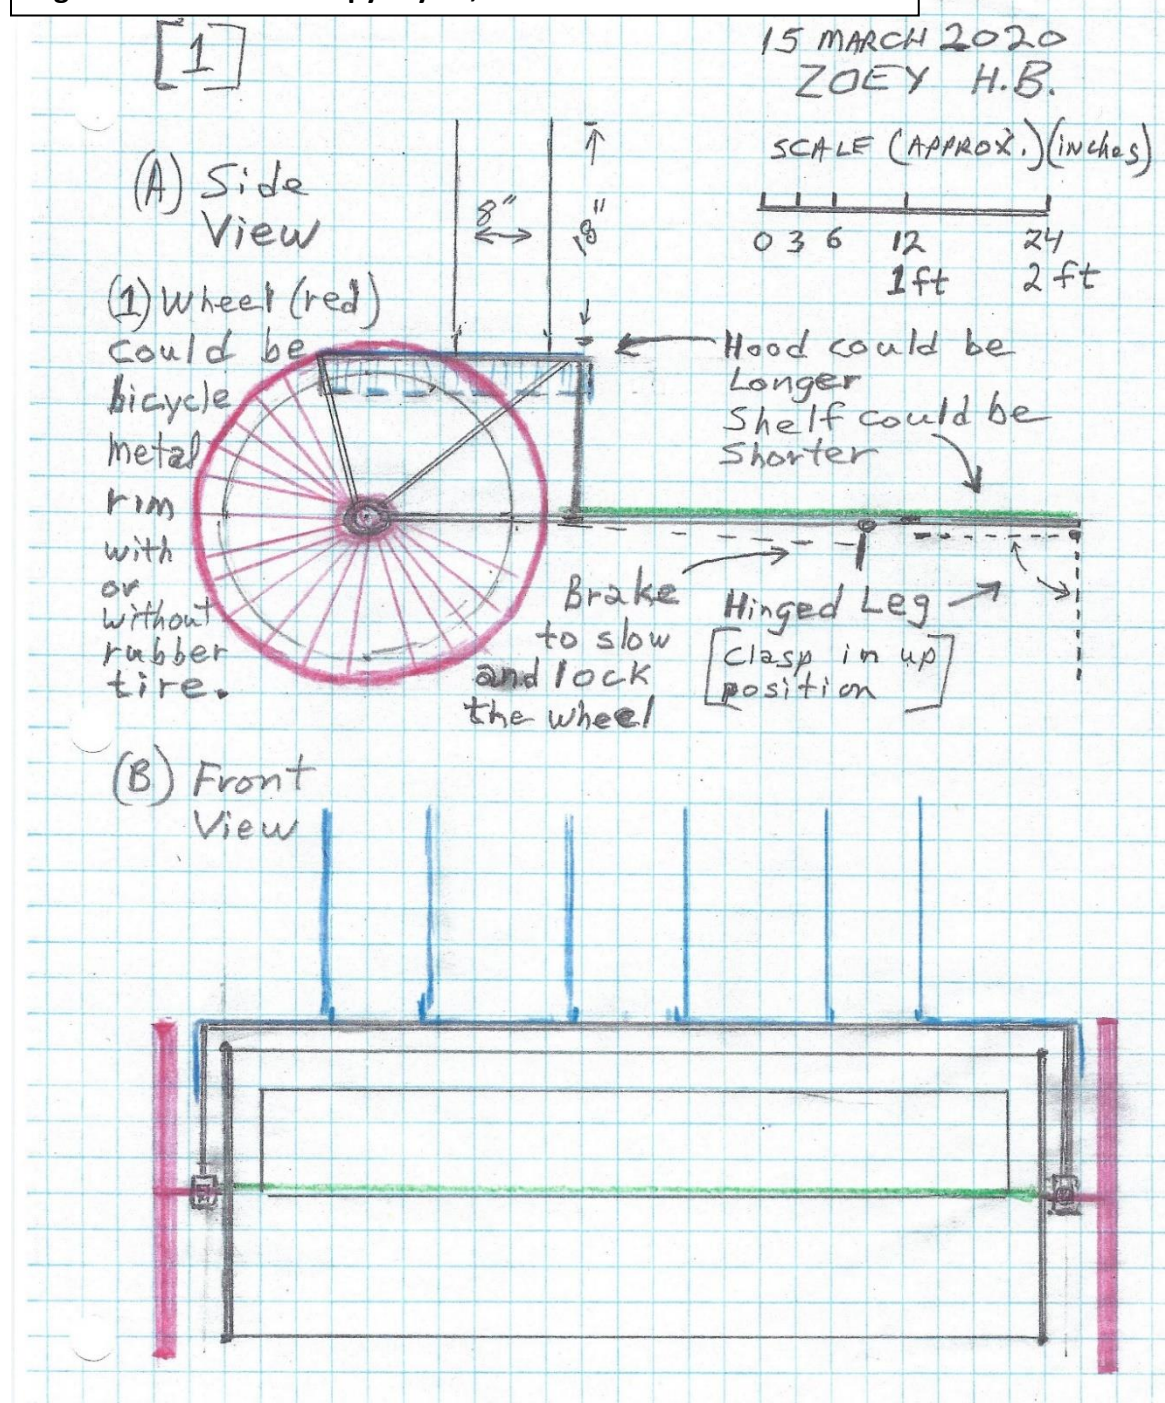 [1]
15 MARCH 2020
ZOEY H.B.
SCALE (APPROX.) (inches)
0 3 6 12 24
1 ft 2 ft
(A) Side
View
8"
(1) Wheel (red)
could be
bicycle
metal
rim
with
or
without
rubber
tire.
Hood could be
Longer
Shelf could be
Shorter
Brake
to slow
and lock
the wheel
Hinged Leg
[Clasp in up
position]
(B) Front
View